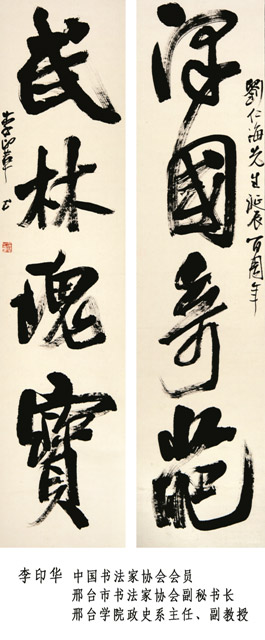 劉仁海先生誕辰百周年
國奇葩
武林瑰寶
李印華书
李印华 中国书法家协会会员
邢台市书法家协会副秘书长
邢台学院政史系主任、副教授